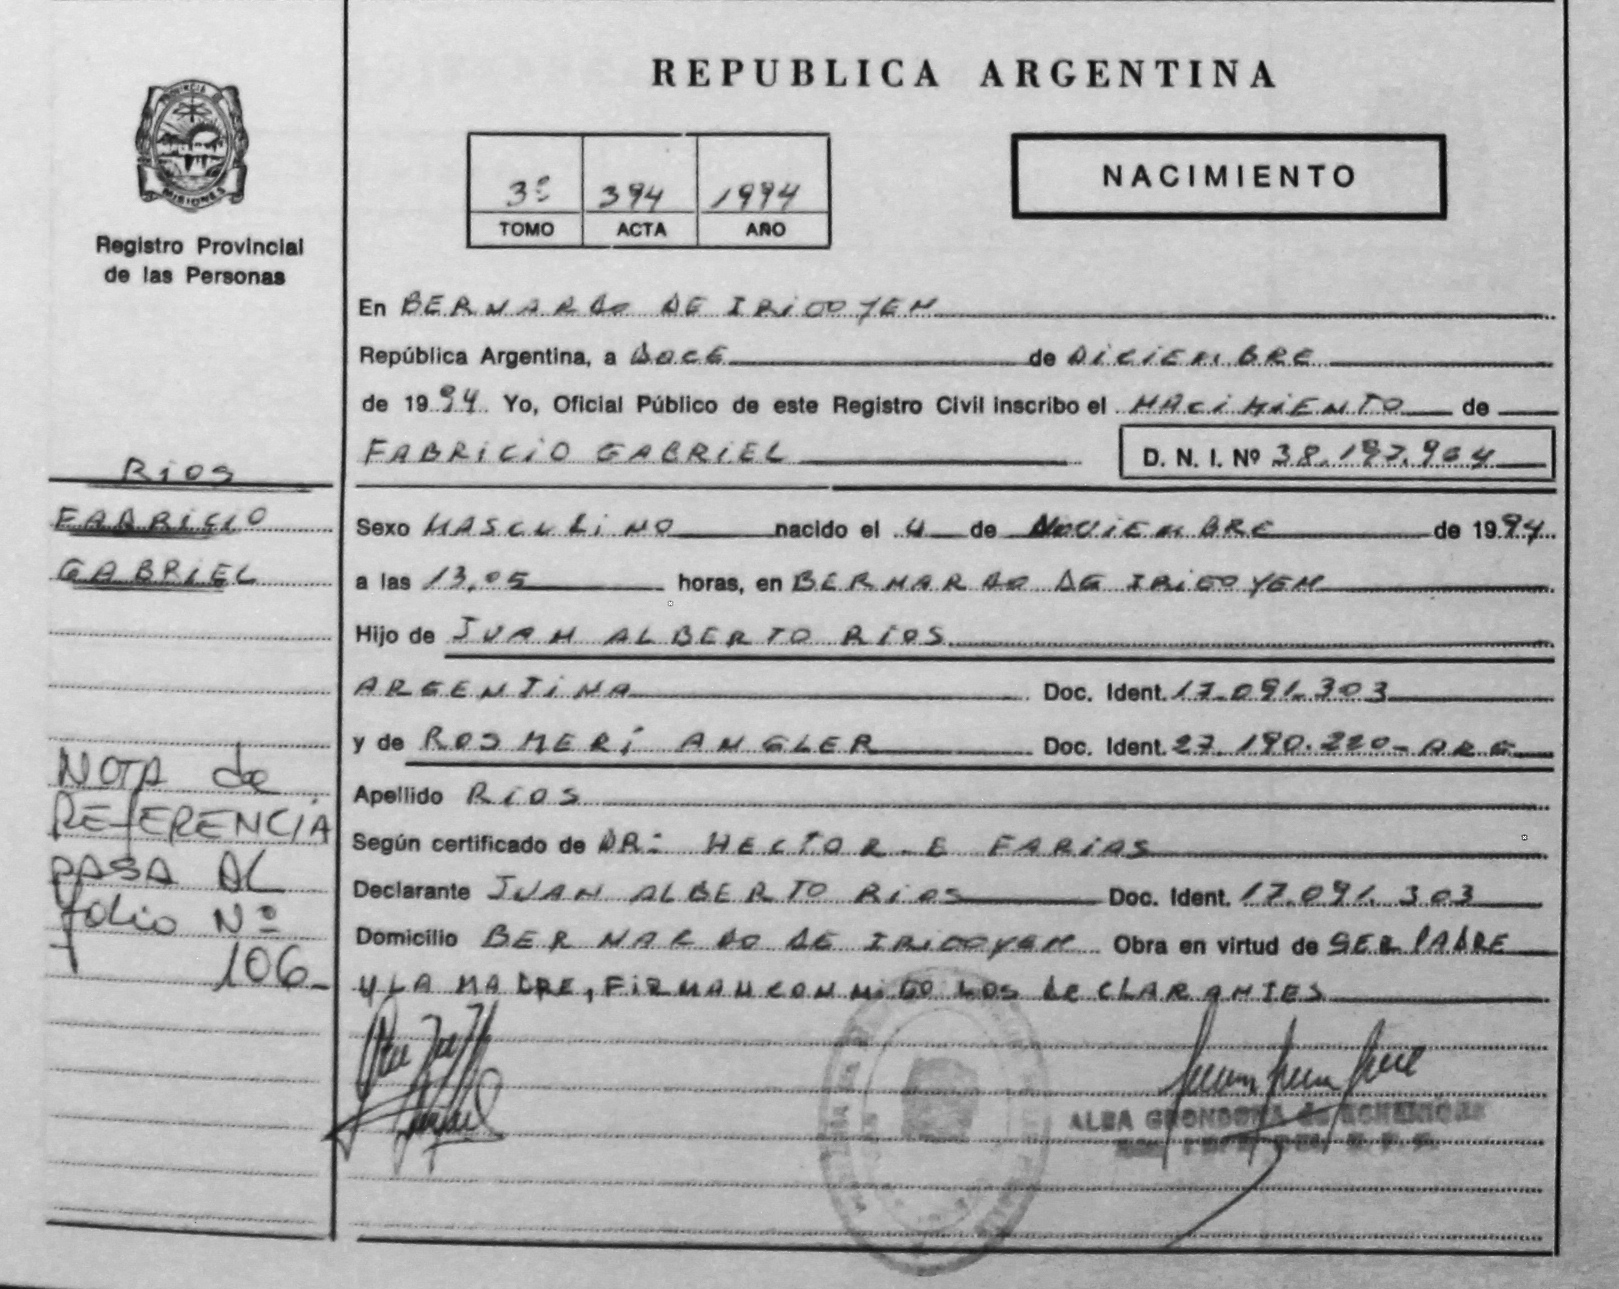 REPUBLICA ARGENTINA
PROVINCIA DE
MISIONES
Registro Provincial
de las Personas
3º 394 1994
TOMO ACTA AÑO
NACIMIENTO
En BERNARDO DE IRIGOYEN
República Argentina, a DOCE de DICIEMBRE
de 1994 Yo, Oficial Público de este Registro Civil inscribo el NACIMIENTO de
FABRICIO GABRIEL D. N. I. Nº
RIOS
FABRICIO
GABRIEL
Sexo MASCULINO nacido el 4 de NOVIEMBRE de 1994
a las 13,05 horas, en BERNARDO DE IRIGOYEN
Hijo de JUAN ALBERTO RIOS
ARGENTINA Doc. Ident. 17.091.303
y de ROSMERI ANGLER Doc. Ident. 27.190.220-ARG
Apellido RIOS
Según certificado de DR: HECTOR E FARIAS
Declarante JUAN ALBERTO RIOS Doc. Ident. 17.091.303
Domicilio BERNARDO DE IRIGOYEN Obra en virtud de SER PADRE
Y LA MADRE, FIRMAN CONMIGO LOS DECLARANTES
NOTA de
REFERENCIA
PASA AL
folio Nº
106-
ALBA